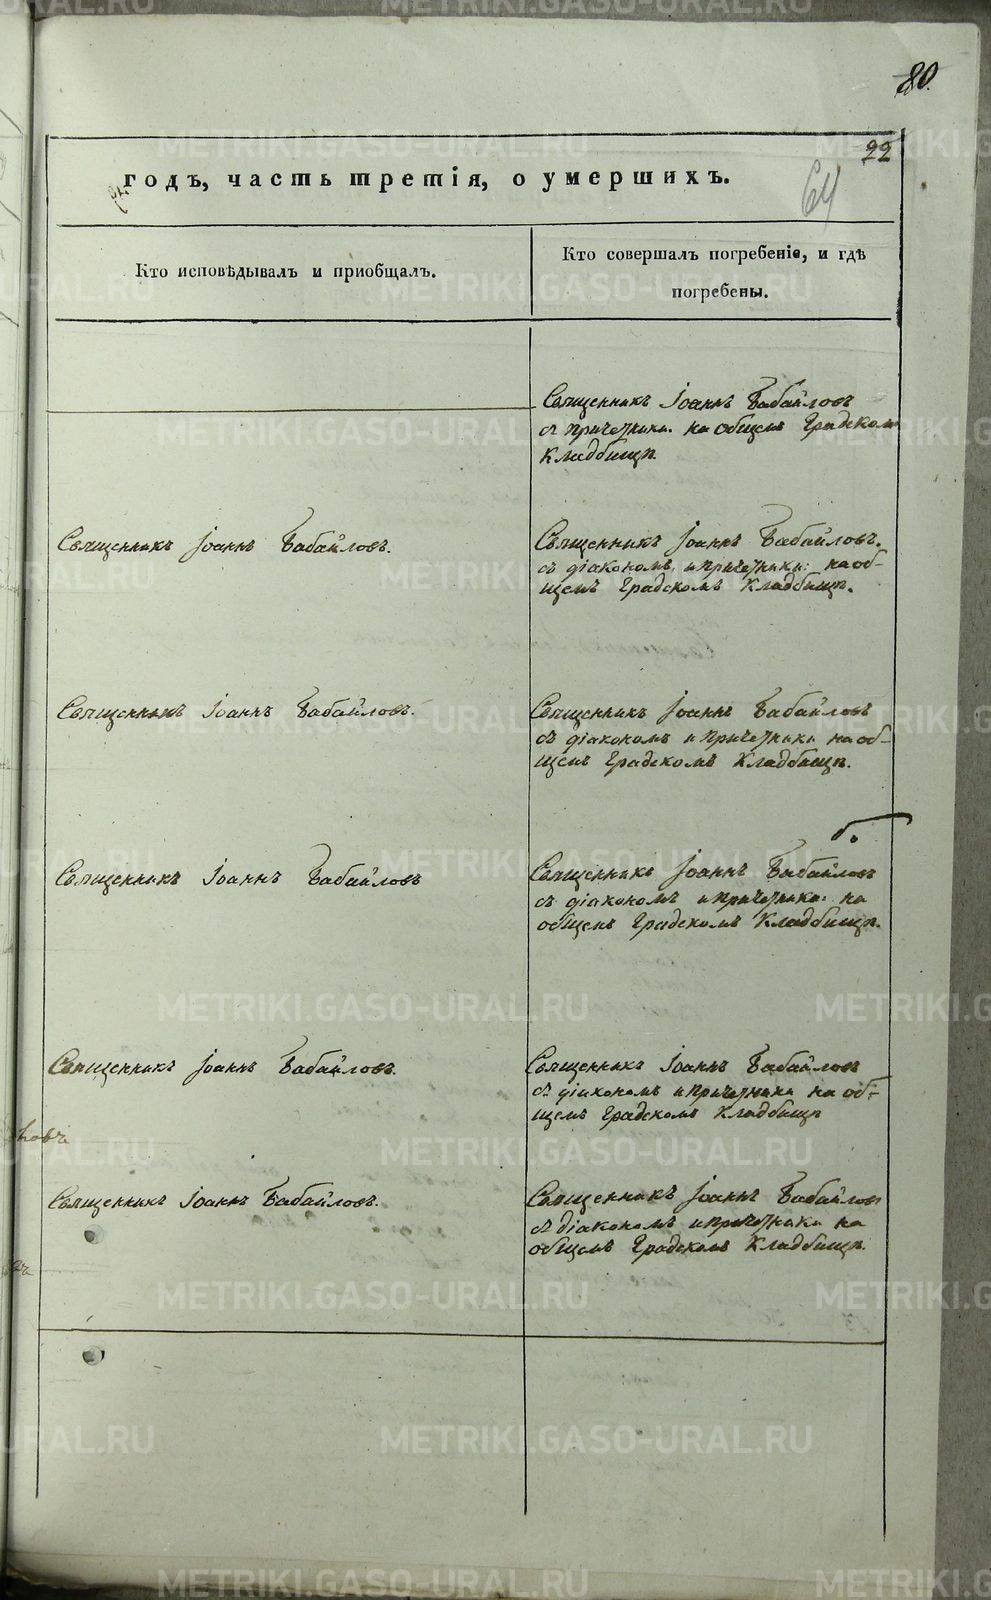 80.
22
64
годъ, часть третія, о умершихъ.
Кто исповѣдывалъ и пріобщалъ.
Кто совершалъ погребеніе, и гдѣ
погребены.
Священникъ Іоаннъ Бабайловъ
съ причетники на общемъ Градскомъ
Кладбищѣ
Священникъ Іоаннъ Бабайловъ.
Священникъ Іоаннъ Бабайловъ.
съ діакономъ, и причетники: на об-
щемъ Градскомъ Кладбищѣ.
Священникъ Іоаннъ Бабайловъ.
Священникъ Іоаннъ Бабайловъ
съ діакономъ и причетники на об-
щемъ Градскомъ Кладбищѣ.
Священникъ Іоаннъ Бабайловъ
Священникъ Іоаннъ Бабайловъ
съ діакономъ и причетники: на
общемъ Градскомъ Кладбищѣ.
Священникъ Іоаннъ Бабайловъ.
Священникъ Іоаннъ Бабайловъ
съ діакономъ и причетники на об-
щемъ Градскомъ Кладбищѣ
Священникъ Іоаннъ Бабайловъ.
Священникъ Іоаннъ Бабайловъ
съ діакономъ и причетники на
общемъ Градскомъ Кладбищѣ.
METRIKI.GASO-URAL.RU